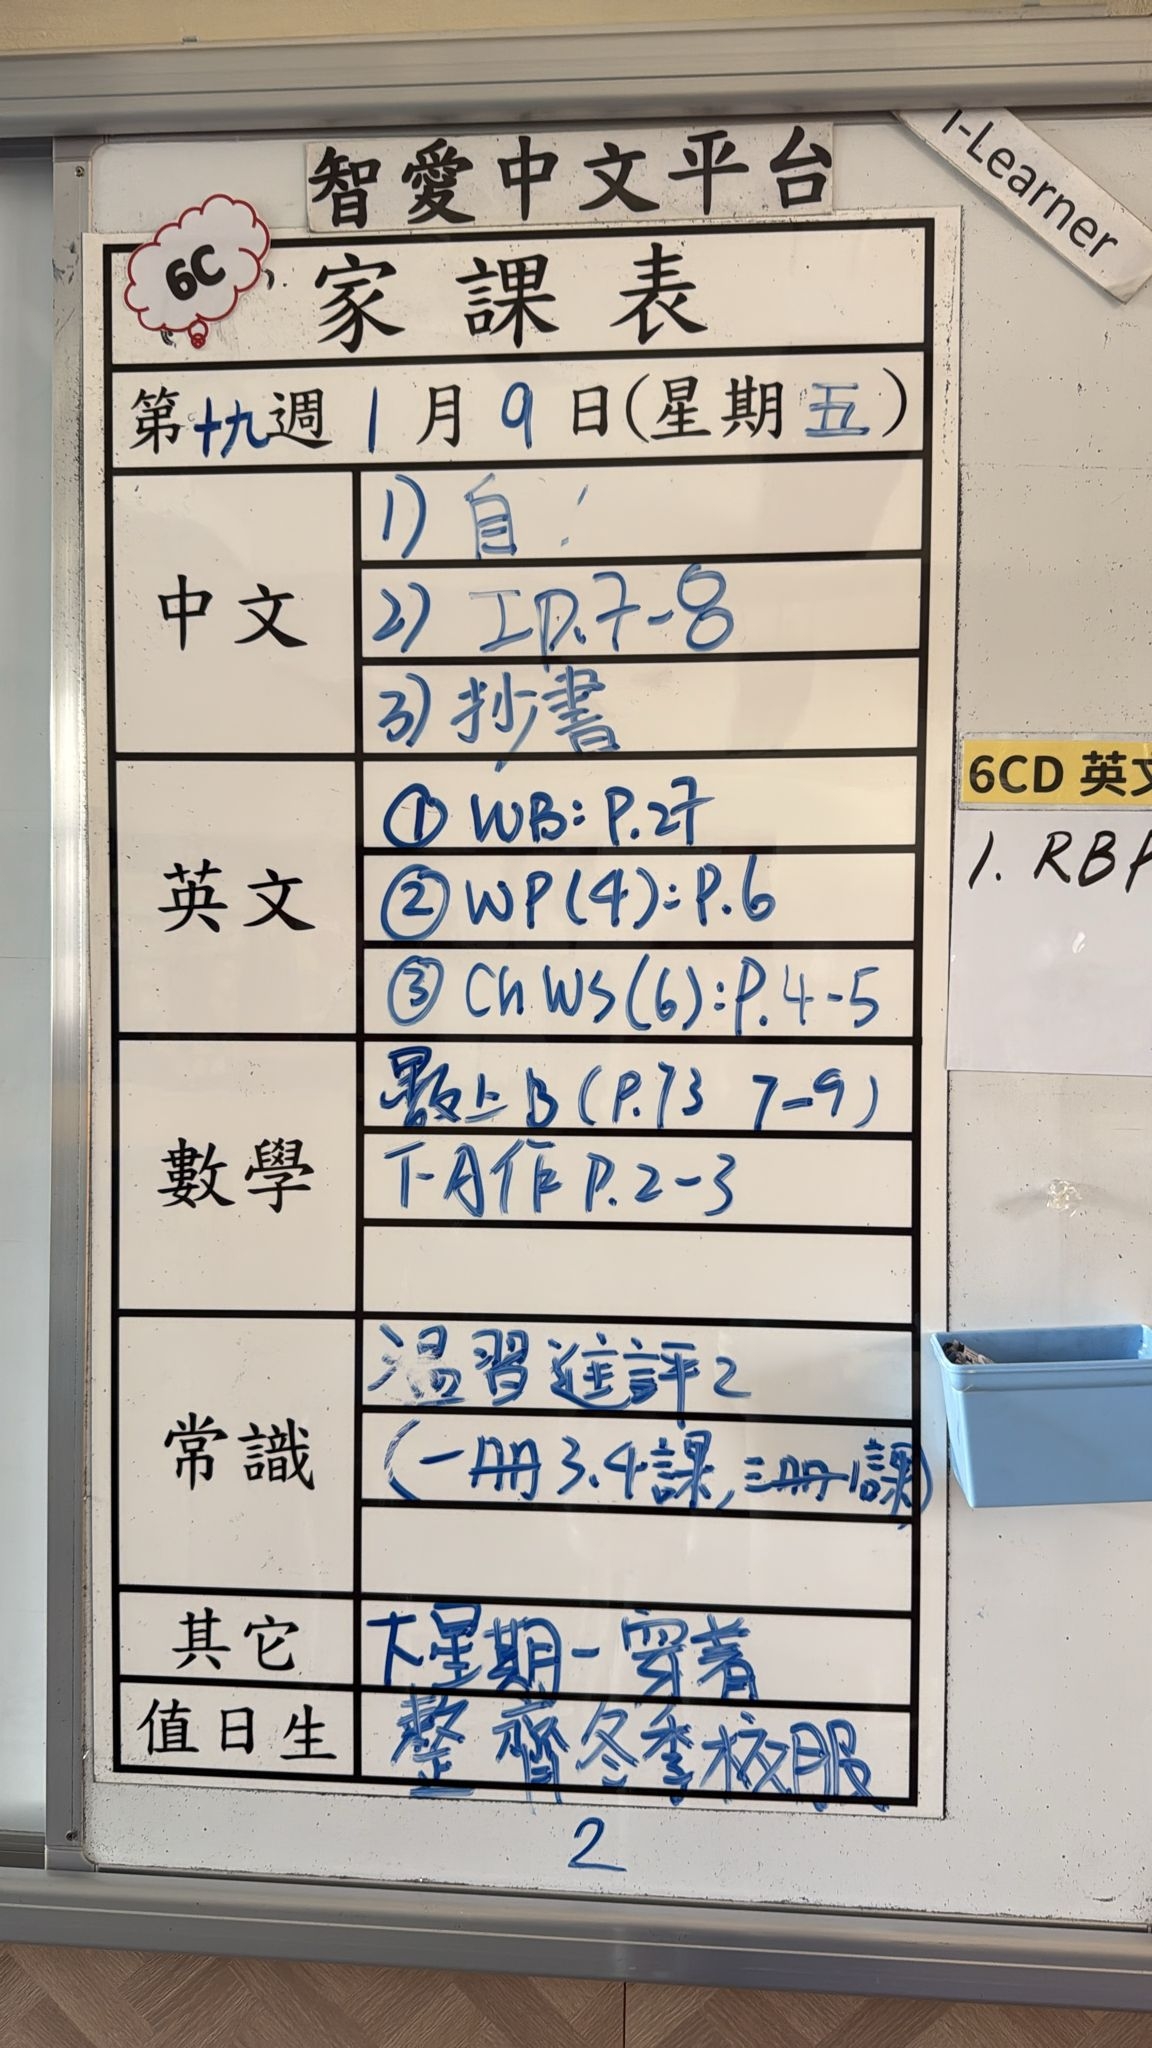 智愛中文平台
i-Learner
6C
家課表
第十九週 1月9日(星期五)
中文
1) 自
2) 工P.7-8
3) 抄書
英文
① WB: P.27
② WP(4): P.6
③ Ch WS(6): P.4-5
數學
上B (P.73 7-9)
下A作 P.2-3
常識
温習進評2
(一冊3.4課, 三冊1課)
其它
大星期一穿着
值日生
整齊冬季校服
2
6CD 英文
1. RBP